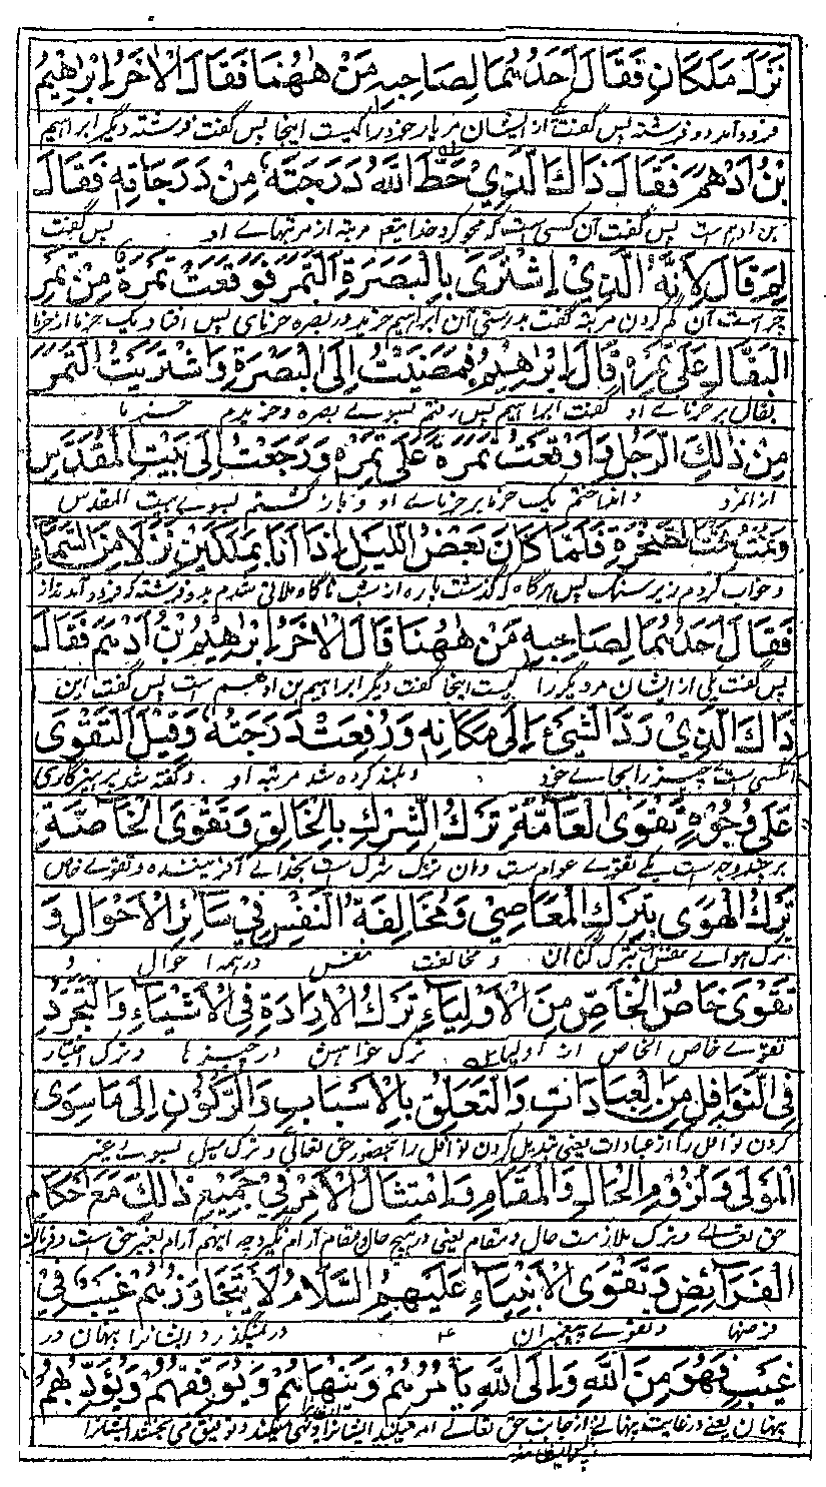 نَزَلَ مَلَكَانِ فَقَالَ اَحَدُهُمَا لِصَاحِبِهٖ مَنْ هٰهُنَا فَقَالَ الْاٰخَرُ اِبْرٰهِيْمُ
فرود آمد دو فرشته پس گفت از ایشان مر یار خود را کیست اینجا پس گفت فرشته دیگر ابراهیم
بْنُ اَدْهَمَ فَقَالَ ذَاكَ الَّذِيْ حَطَّ اللّٰهُ دَرَجَتَهٗ مِنْ دَرَجَاتِهٖ فَقَالَ
بن ادهم ست پس گفت آن کسی است که محو کرد خدایتعم مرتبه از مرتبهاے او پس گفت
لِمَ قَالَ لِاَنَّهُ الَّذِيْ اِشْتَرٰى بِالْبَصَرَةِ التَّمَرَ فَوَقَعَتْ تَمَرَةٌ مِنْ تَمَرِ
چرا ست آن کم کردن مرتبه گفت بدرستی آن ابراهیم خرید در بصره خرمای پس افتاد یک خرما از خرما
الْبَقَّالِ عَلٰى تَمَرِهٖ قَالَ اِبْرٰهِيْمُ فَمَضَيْتُ اِلَى الْبَصْرَةِ وَاشْتَرَيْتُ التَّمَرَ
بقال بر خرماے او گفت ابراهیم پس رفتم بسوے بصره و خریدم خرما
مِنْ ذٰلِكَ الرَّجُلِ وَاَوْقَعْتُ تَمَرَةً عَلٰى تَمَرِهٖ وَرَجَعْتُ اِلٰى بَيْتِ الْمُقَدَّسِ
از آنمرد و انداختم یک خرما بر خرماے او و باز گشتم بسوے بیت المقدس
وَنِمْتُ تَحْتَ الصَّخْرَةِ فَلَمَّا كَانَ بَعْضُ اللَّيْلِ اِذَا اَنَا بِمَلَكَيْنِ نَزَلَا مِنَ السَّمَاءِ
و خواب کردم زیر سنگ پس هرگاه که گذشت پاره از شب ناگاه ملاقی شدم بدو فرشته که فرود آمدند از
فَقَالَ اَحَدُهُمَا لِصَاحِبِهٖ مَنْ هٰهُنَا قَالَ الْاٰخَرُ اِبْرٰهِيْمُ بْنُ اَدْهَمَ فَقَالَ
پس گفت یکی از ایشان مر دیگر را کیست اینجا گفت دیگر ابراهیم بن ادهم ست پس گفت این
ذَاكَ الَّذِيْ رَدَّ الشَّيْءَ اِلٰى مَكَانِهٖ وَرُفِعَتْ دَرَجَتُهٗ وَقِيْلَ التَّقْوٰى
آنکسی ست چیز را بجاے خود و بلند کرده شد مرتبه او و گفته شد پرهیزگاری
عَلٰى وُجُوْهٍ تَقْوَى الْعَامَّةِ تَرْكُ الشِّرْكِ بِالْخَالِقِ وَتَقْوَى الْخَاصَّةِ
بر چند وجه ست یکے تقوے عوام ست و آن ترک شرک ست بخداے آفریننده و تقوے خاص
تَرْكُ الْهَوٰى بِتَرْكِ الْمَعَاصِيْ وَمُخَالِفَةُ النَّفْسِ فِيْ سَائِرِ الْاَحْوَالِ وَ
ترک هواے نفس بترک گناهان و مخالفت نفس در همه احوال و
تَقْوَى خَاصُّ الْخَاصِّ مِنَ الْاَوْلِيَاءِ تَرْكُ الْاِرَادَةِ فِي الْاَشْيَاءِ وَالتَّجَرُّدِ
تقوے خاص الخاص از اولیا ترک خواهش در چیزها و ترک اختیار
فِي النَّوَافِلِ مِنَ الْعِبَادَاتِ وَالتَّعَلُّقِ بِالْاَسْبَابِ وَالرُّكُوْنِ اِلٰى مَا سِوَى
کردن نوافل را از عبادات یعنی تبدیل کردن نوافل را بحضور حق تعالی و ترک میل بسوے غیر
الْمَوْلٰى وَلُزُوْمِ الْحَالِ وَالْمَقَامِ وَامْتِثَالُ الْاَمْرِ فِيْ جَمِيْعِ ذٰلِكَ مَعَ اَحْكَامِ
حق تعالے و ترک ملازمت حال و مقام یعنی در هیچ حال و مقام آرام نگیرد چه اینهم آرام بغیر حق ست و
الْفَرَائِضِ وَتَقْوَى الْاَنْبِيَاءِ عَلَيْهِمُ السَّلَامُ لَا يَتَجَاوَزُهُمْ غَيْبٌ فِيْ
فرضها و تقوے پیغمبران درنمیگذرد ایشانرا پنهان در
غَيْبٍ فَهُوَ مِنَ اللّٰهِ وَاِلَى اللّٰهِ يَأْمُرُهُمْ وَيَنْهَاهُمْ وَيُوَفِّقُهُمْ وَيُؤَدِّبُهُمْ
پنهان یعنی در غایت پنهانی از جانب حق تعالے امر میکند ایشانرا و نهی میکند و توفیق می بخشد ایشانرا